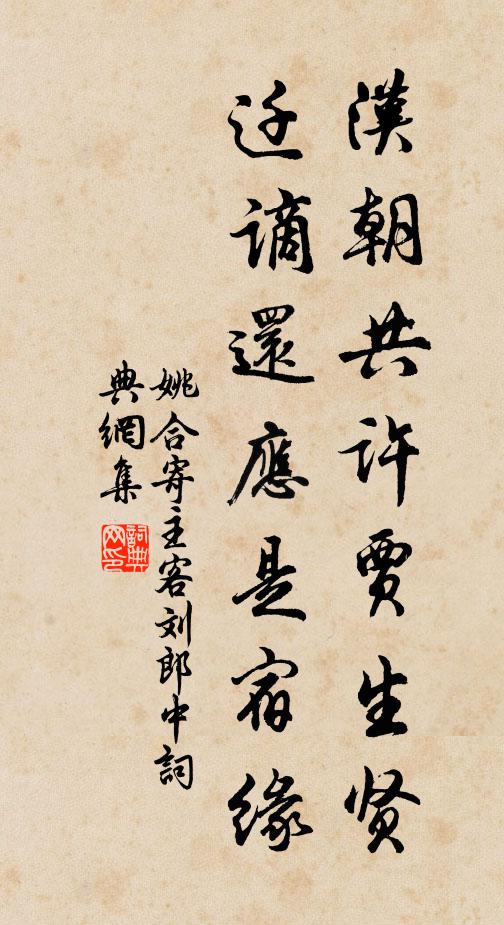 漢朝共许賈生贤
迁谪還應是宿缘
姚合寄主客刘郎中詞
典網集
詞典网印